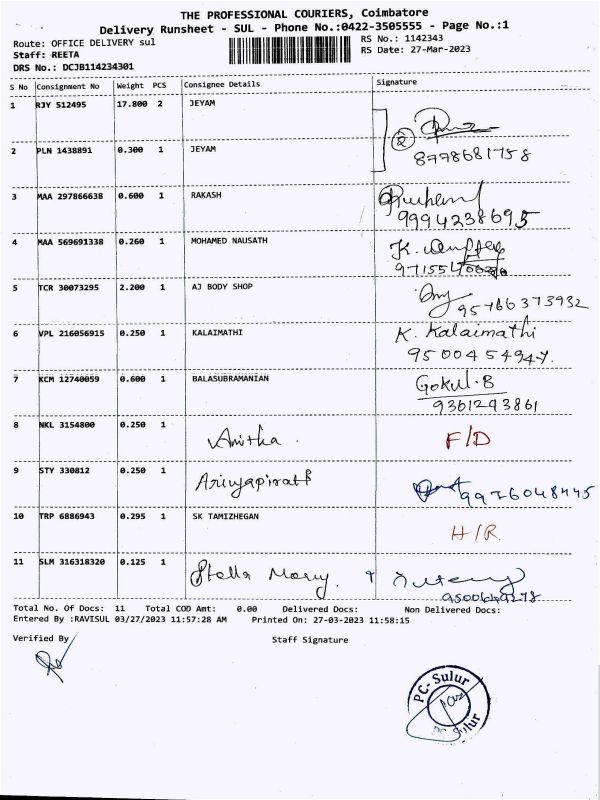 THE PROFESSIONAL COURIERS, Coimbatore
Delivery Runsheet - SUL - Phone No.:0422-3505555 - Page No.:1
Route: OFFICE DELIVERY sul RS No.: 1142343
Staff: REETA RS Date: 27-Mar-2023
DRS No.: DCJB114234301
S No Consignment No Weight PCS Consignee Details Signature
1 RJY 512495 17.800 2 JEYAM
2 PLN 1438891 0.300 1 JEYAM
8778681758
3 MAA 297866638 0.600 1 RAKASH
9994238695
4 MAA 569691338 0.260 1 MOHAMED NAUSATH
5 TCR 30073295 2.200 1 AJ BODY SHOP
9576373932
6 VPL 216056915 0.250 1 KALAIMATHI K. Kalaimathi
9500454947.
7 KCM 12740059 0.600 1 BALASUBRAMANIAN Gokul.B
9361243861
8 NKL 3154800 0.250 1 Anitha. F/D
9 STY 330812 0.250 1
9976048445
10 TRP 6886943 0.295 1 SK TAMIZHEGAN H/R.
11 SLM 316318320 0.125 1 Stella Mary.
Total No. Of Docs: 11 Total COD Amt: 0.00 Delivered Docs: Non Delivered Docs:
Entered By :RAVISUL 03/27/2023 11:57:28 AM Printed On: 27-03-2023 11:58:15
Verified By Staff Signature
PC-Sulur
PC-Sulur